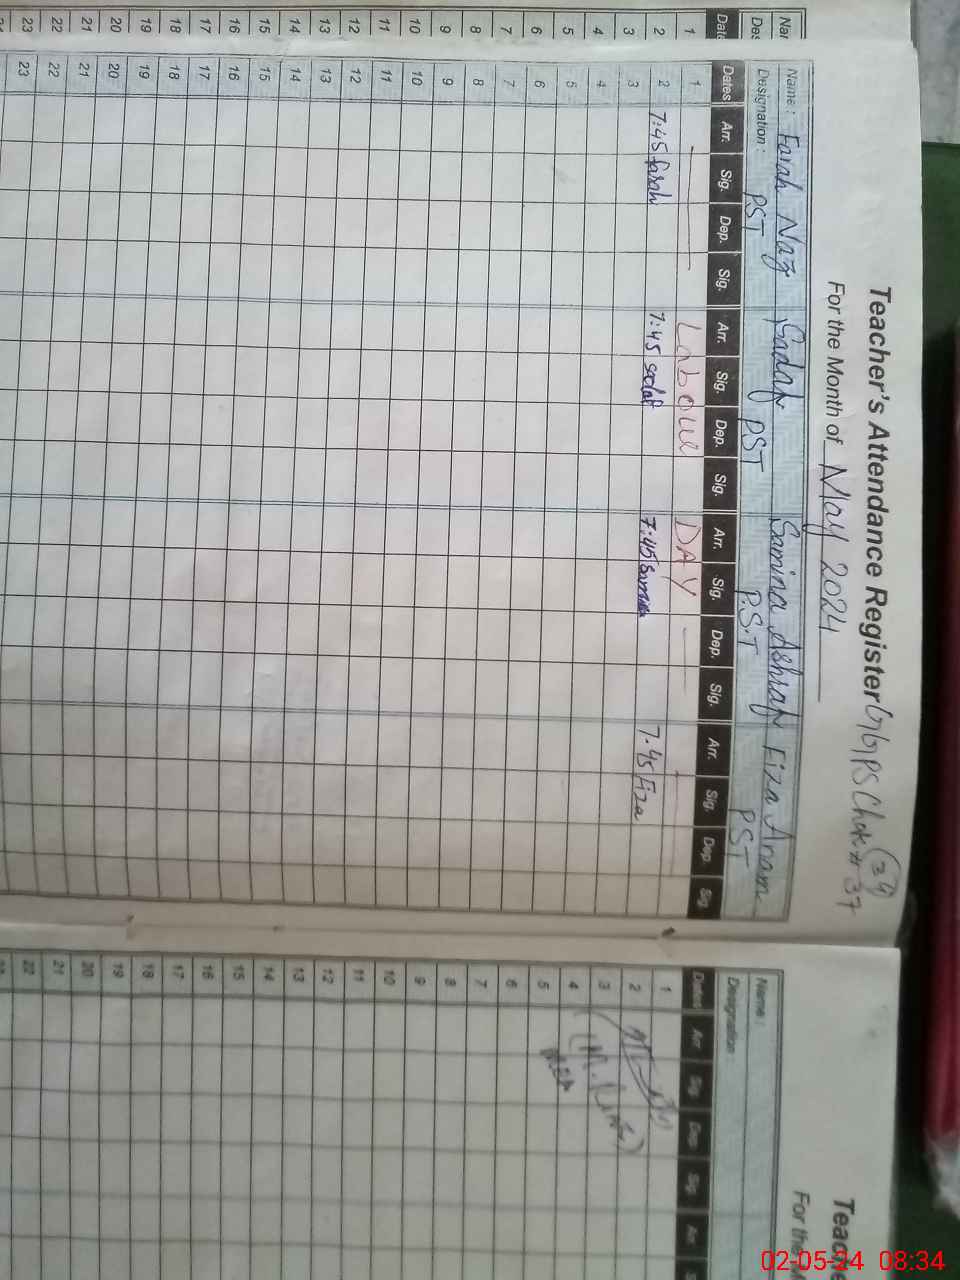 Teacher's Attendance Register GGPS Chak # 37
34
For the Month of May 2024
Name : Farah Naz Sadaf Samina Ashraf Fiza Anam
Designation : PST PST P.S.T PST
Dates Arr. Sig. Dep. Sig. Arr. Sig. Dep. Sig. Arr. Sig. Dep. Sig. Arr. Sig. Dep. Sig.
1 Labour DAY
2 7:45 farah 7:45 sadaf 7:45 Samina 7.45 Fiza
3
4
5
6
7
8
9
10
11
12
13
14
15
16
17
18
19
20
21
22
23
Nar
Des
Date
1
2
3
4
5
6
7
8
9
10
11
12
13
14
15
16
17
18
19
20
21
Teache
For the M
Name :
Designation
Dates Arr. Sig. Dep. Sig. Arr. S
1
2
3
4
5
6
7
8
9
10
11
12
13
14
15
16
17
18
19
20
21
22
02-05-24 08:34